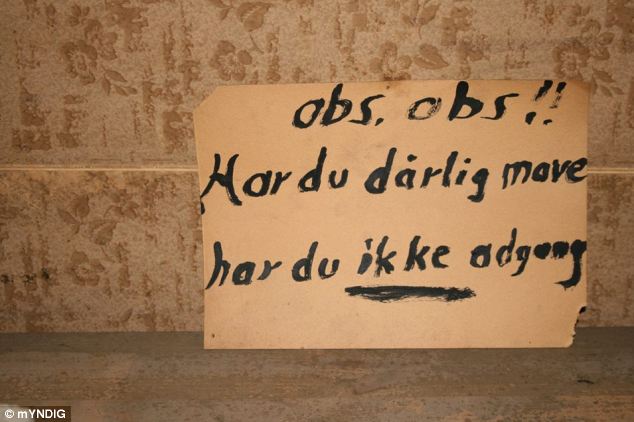 obs. obs!!
Har du dårlig mave
har du ikke adgang
© mYNDIG